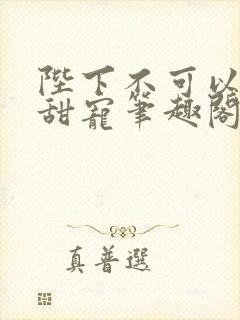 陛下不可以
甜寵筆趣閣
真普選